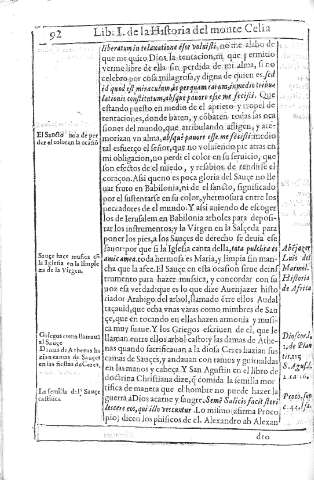 92
Lib. I. de la Historia del monte Celia
liberatum in relaxatione esse voluisti, no me alabo de
que me quito Dios la tentacion, ni que permitio
verme libre de ella sin perdida de mi alma, si no
celebro por cosa milagrosa, y digna de quien es, sed
id quod est miraculum in medio tribu
lationis constitutum, absque pauore esse me fecisti. Que
estando puesto en medio de el aprieto y tropel de
tentaciones, donde baten, y cōbaten todas las oca
siones del mundo, que atribulando afligen, y ate-
morizan mi alma, absque pauore esse me fecisti: medio
tal esfuerço el señor, que no voluiendo pie atras en
mi obligacion, no perdi el color en su seruicio, que
son efectos de el miedo, y resabios de rendirse el
coraçon. Assi que no es poca gloria del Sauçe no lle
uar fruto en Babilonia, ni de el santo, significado
por el sustentarse en su color, y hermosura entre los
mercadores de el mundo. Y assi auiendo de escoger
los de Ierusalem en Babilonia arboles para deposi-
tar los instrumentos, y la Virgen en la Salçeda para
poner los pies, a los Sauçes de derecho se deuia ese
fauor: por que si la Iglesia canta della, tota pulchra es
amica mea. toda hermosa es Maria, y limpia sin man-
cha que la afee. El Sauçe en esta ocasion sirue de ins
trumento para hazer musica, y concordar con su
voz esta verdad: que es lo que dize Auenjazer histo
riador Arabigo del arbol, llamado entre ellos Audal
taçauid, que echa vnas varas como mimbres de San
çe, que en tocando en ellas hazen armonia y musi-
ca muy suaue. Y los Griegos escriuen de el, que le
llaman entre ellos arbol casto: y las damas de Athe-
nas quando sacrificauan a la diosa Ceres hazian sus
camas de Sauçes, y andauan con ramos y guirnaldas
en las manos y cabeça. Y San Agustin en el libro de
doctrina Christiana dize, q̄ comida la semilla mor
tifica de manera que el hombre no puede hazer la
guerra a Dios a carne y sangre. Semē Salicis facit steri
lescere eos, qui illo vescuntur. Lo mismo afirma Proco
pio; dicen los phisicos de el. Alexandro ab Alexan
dro
El Santo
de per
der el color en la ocasiō
Sauçe haze musica cō
la Iglesia en la limpie
za de la Virgen.
Griegos como llaman
al Sauçe
Damas de Athenas ha
zian camas de Sauçes
en las fiestas de Ceres.
La semilla del Sauçe
castifica.
Abējazer
Luis del
Marmol.
Historia
de Africa
S. Agust.